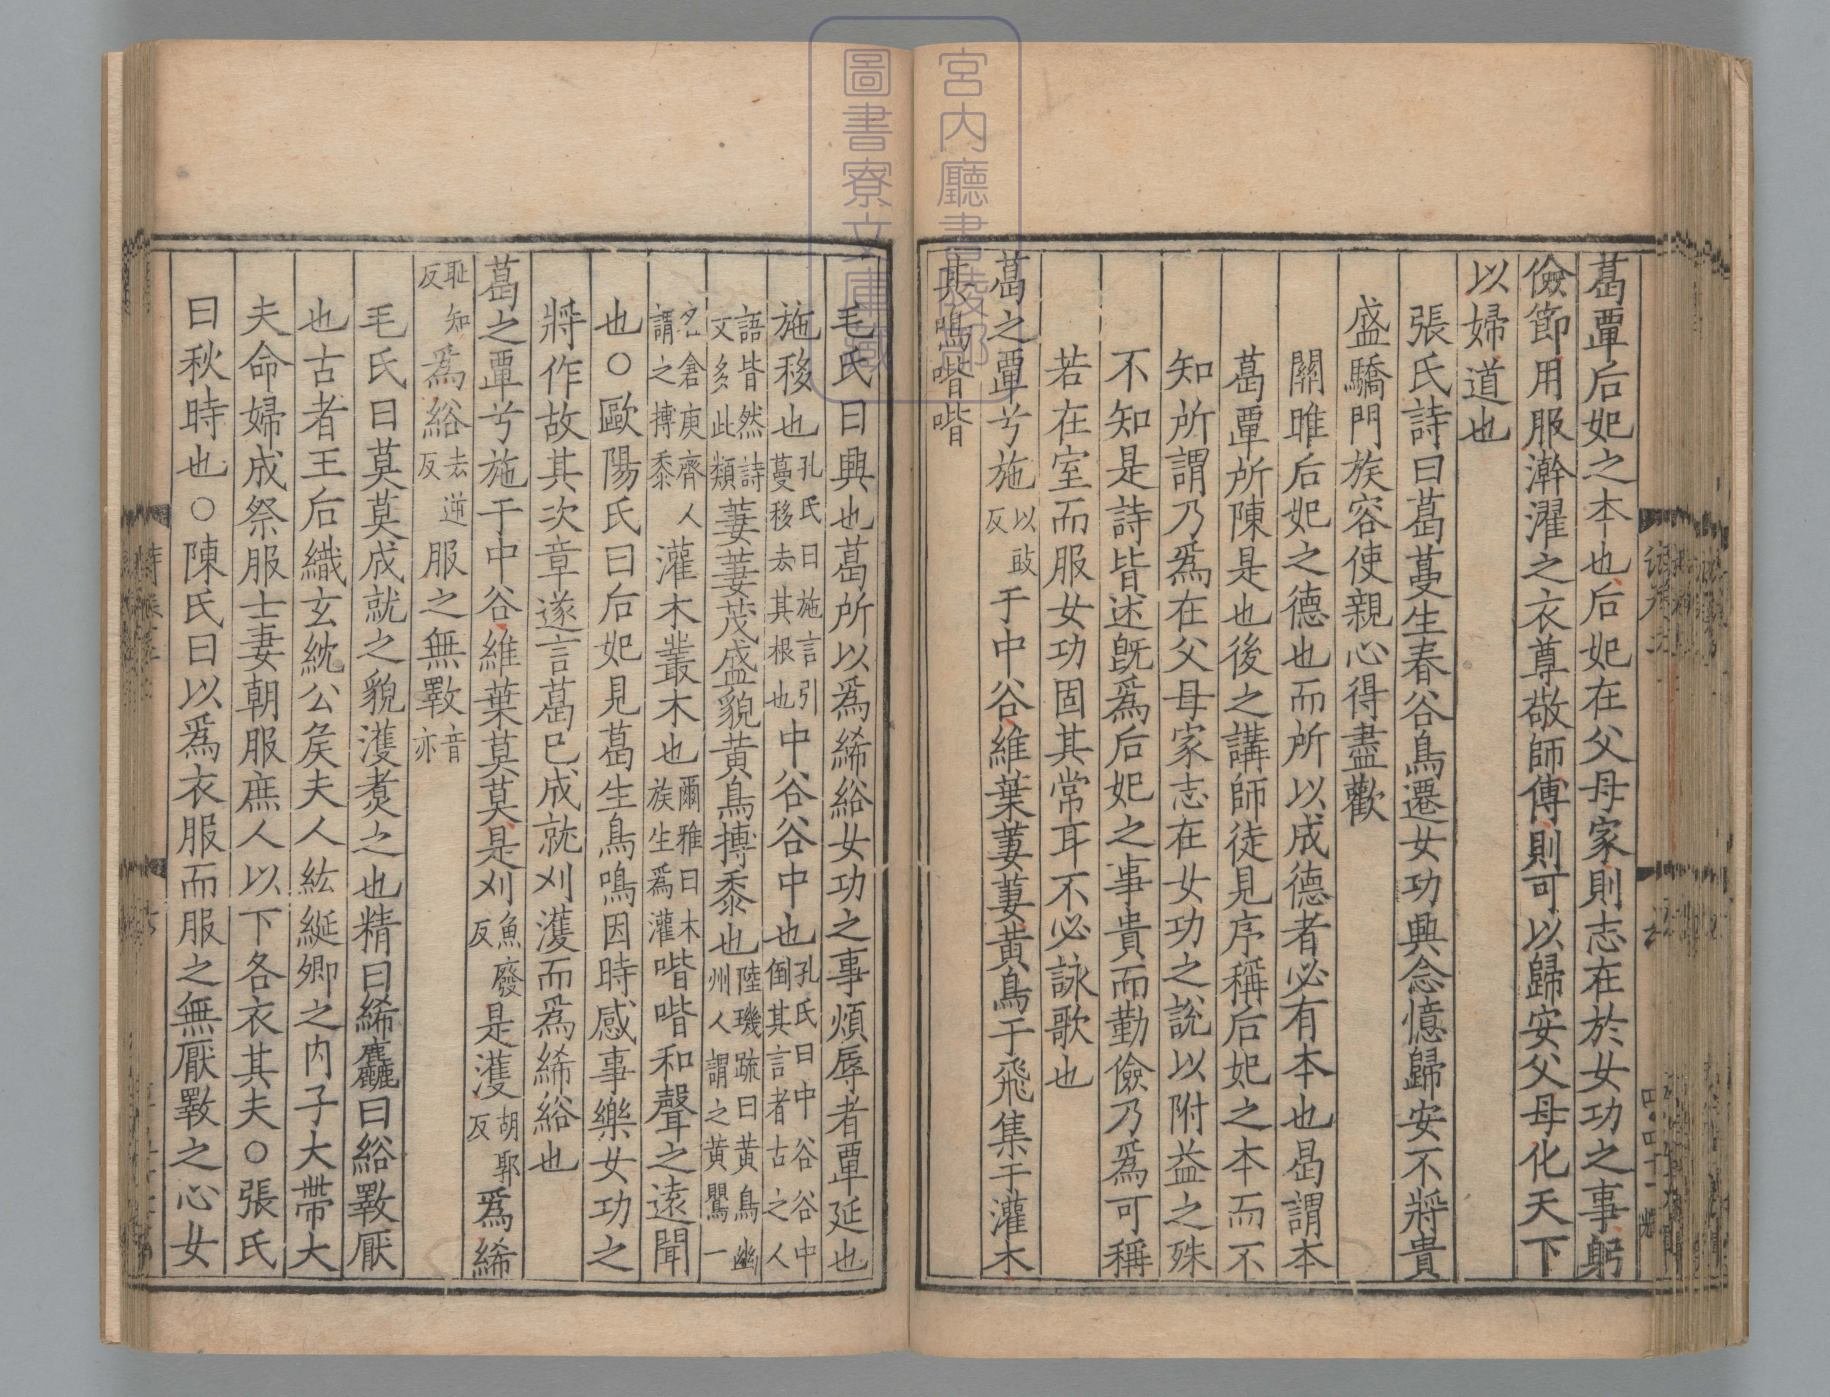 葛覃后妃之本也后妃在父母家則志在於女功之事躬
儉節用服澣濯之衣尊敬師傅則可以歸安父母化天下
以婦道也
張氏詩曰葛蔓生春谷鳥遷女功興念憶歸安不將貴
盛驕門族容使親心得盡歡
關雎后妃之德也而所以成德者必有本也曷謂本
葛覃所陳是也後之講師徒見序稱后妃之本而不
知所謂乃爲在父母家志在女功之說以附益之殊
不知是詩皆述旣爲后妃之事貴而勤儉乃爲可稱
若在室而服女功固其常耳不必詠歌也
葛之覃兮施以豉反于中谷維葉萋萋黃鳥于飛集于灌木
其鳴喈喈
毛氏曰興也葛所以爲絺綌女功之事煩辱者覃延也
施移也孔氏曰施言引蔓移去其根也中谷谷中也孔氏曰中谷谷中倒其言者古之人
語皆然詩文多此類萋萋茂盛貌黃鳥搏黍也陸璣疏曰黃鳥幽州人謂之黃鸎一
名倉庚齊人謂之搏黍灌木叢木也爾雅曰木族生爲灌喈喈和聲之遠聞
也○歐陽氏曰后妃見葛生鳥鳴因時感事樂女功之
將作故其次章遂言葛已成就刈濩而爲絺綌也
葛之覃兮施于中谷維葉莫莫是刈魚廢反是濩胡郭反爲絺
恥知反爲綌去逆反服之無斁音亦
毛氏曰莫莫成就之貌濩煑之也精曰絺麤曰綌斁厭
也古者王后織玄紞公矦夫人紘綖卿之內子大帶大
夫命婦成祭服士妻朝服庶人以下各衣其夫○張氏
曰秋時也○陳氏曰以爲衣服而服之無厭斁之心女
宮内廳書陵部
圖書寮文庫藏